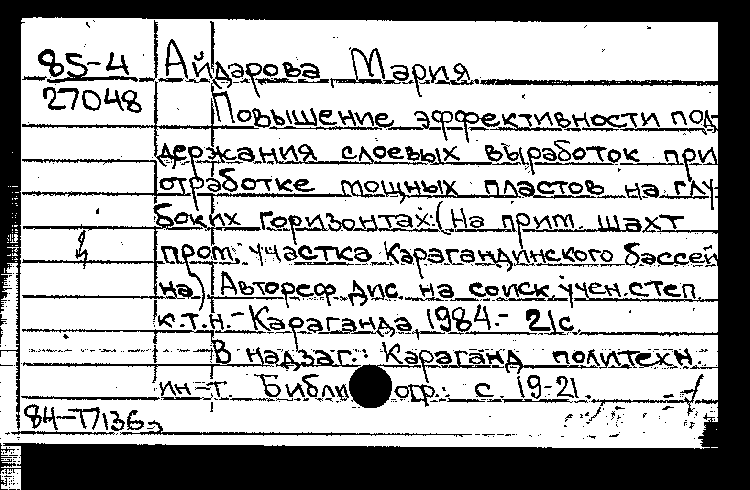 85-4 Айдарова, Мария.
27048 Повышение эффективности под-
держания слоевых выработок при
отработке мощных пластов на глу-
боких горизонтах: (На прим. шахт
пром. участка Карагандинского бассей
на) Автореф. дис. на соиск. учен. степ
к.т.н. - Караганда, 1984. - 21с.
В надзаг.: Караганд политехн.
ин-т. Библиогр.: с. 19-21.
84-17136э